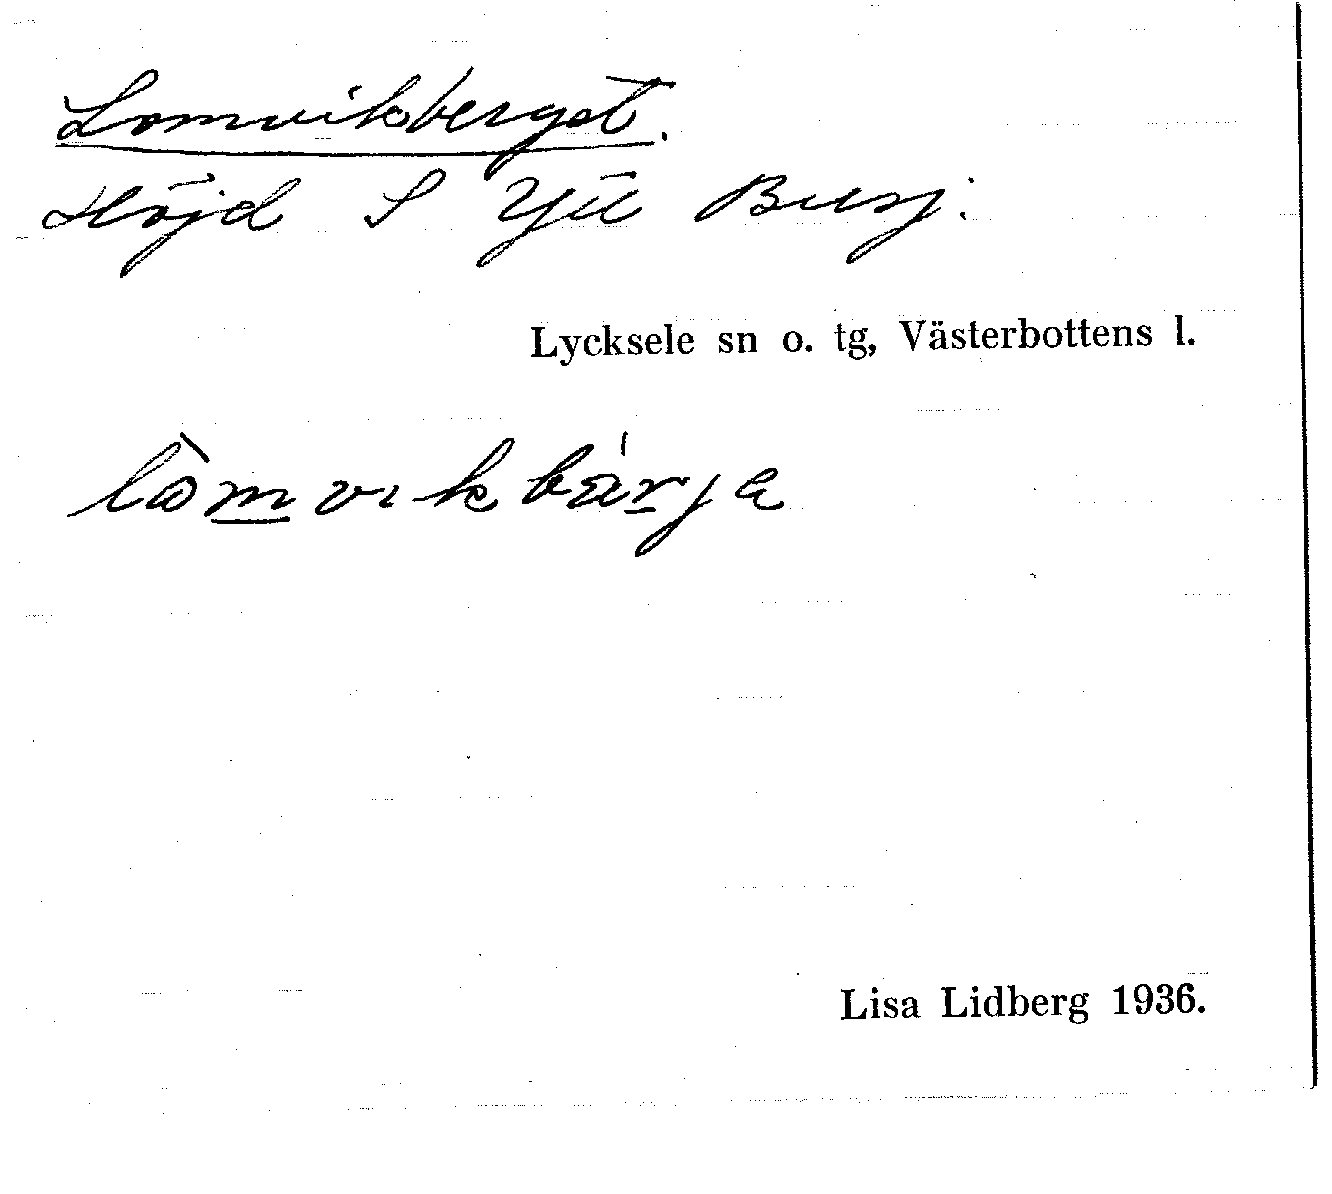 Lomvikberget.
Höjd S Yil Busj.
Lycksele sn o. tg, Västerbottens l.
lòmvikbárja
Lisa Lidberg 1936.